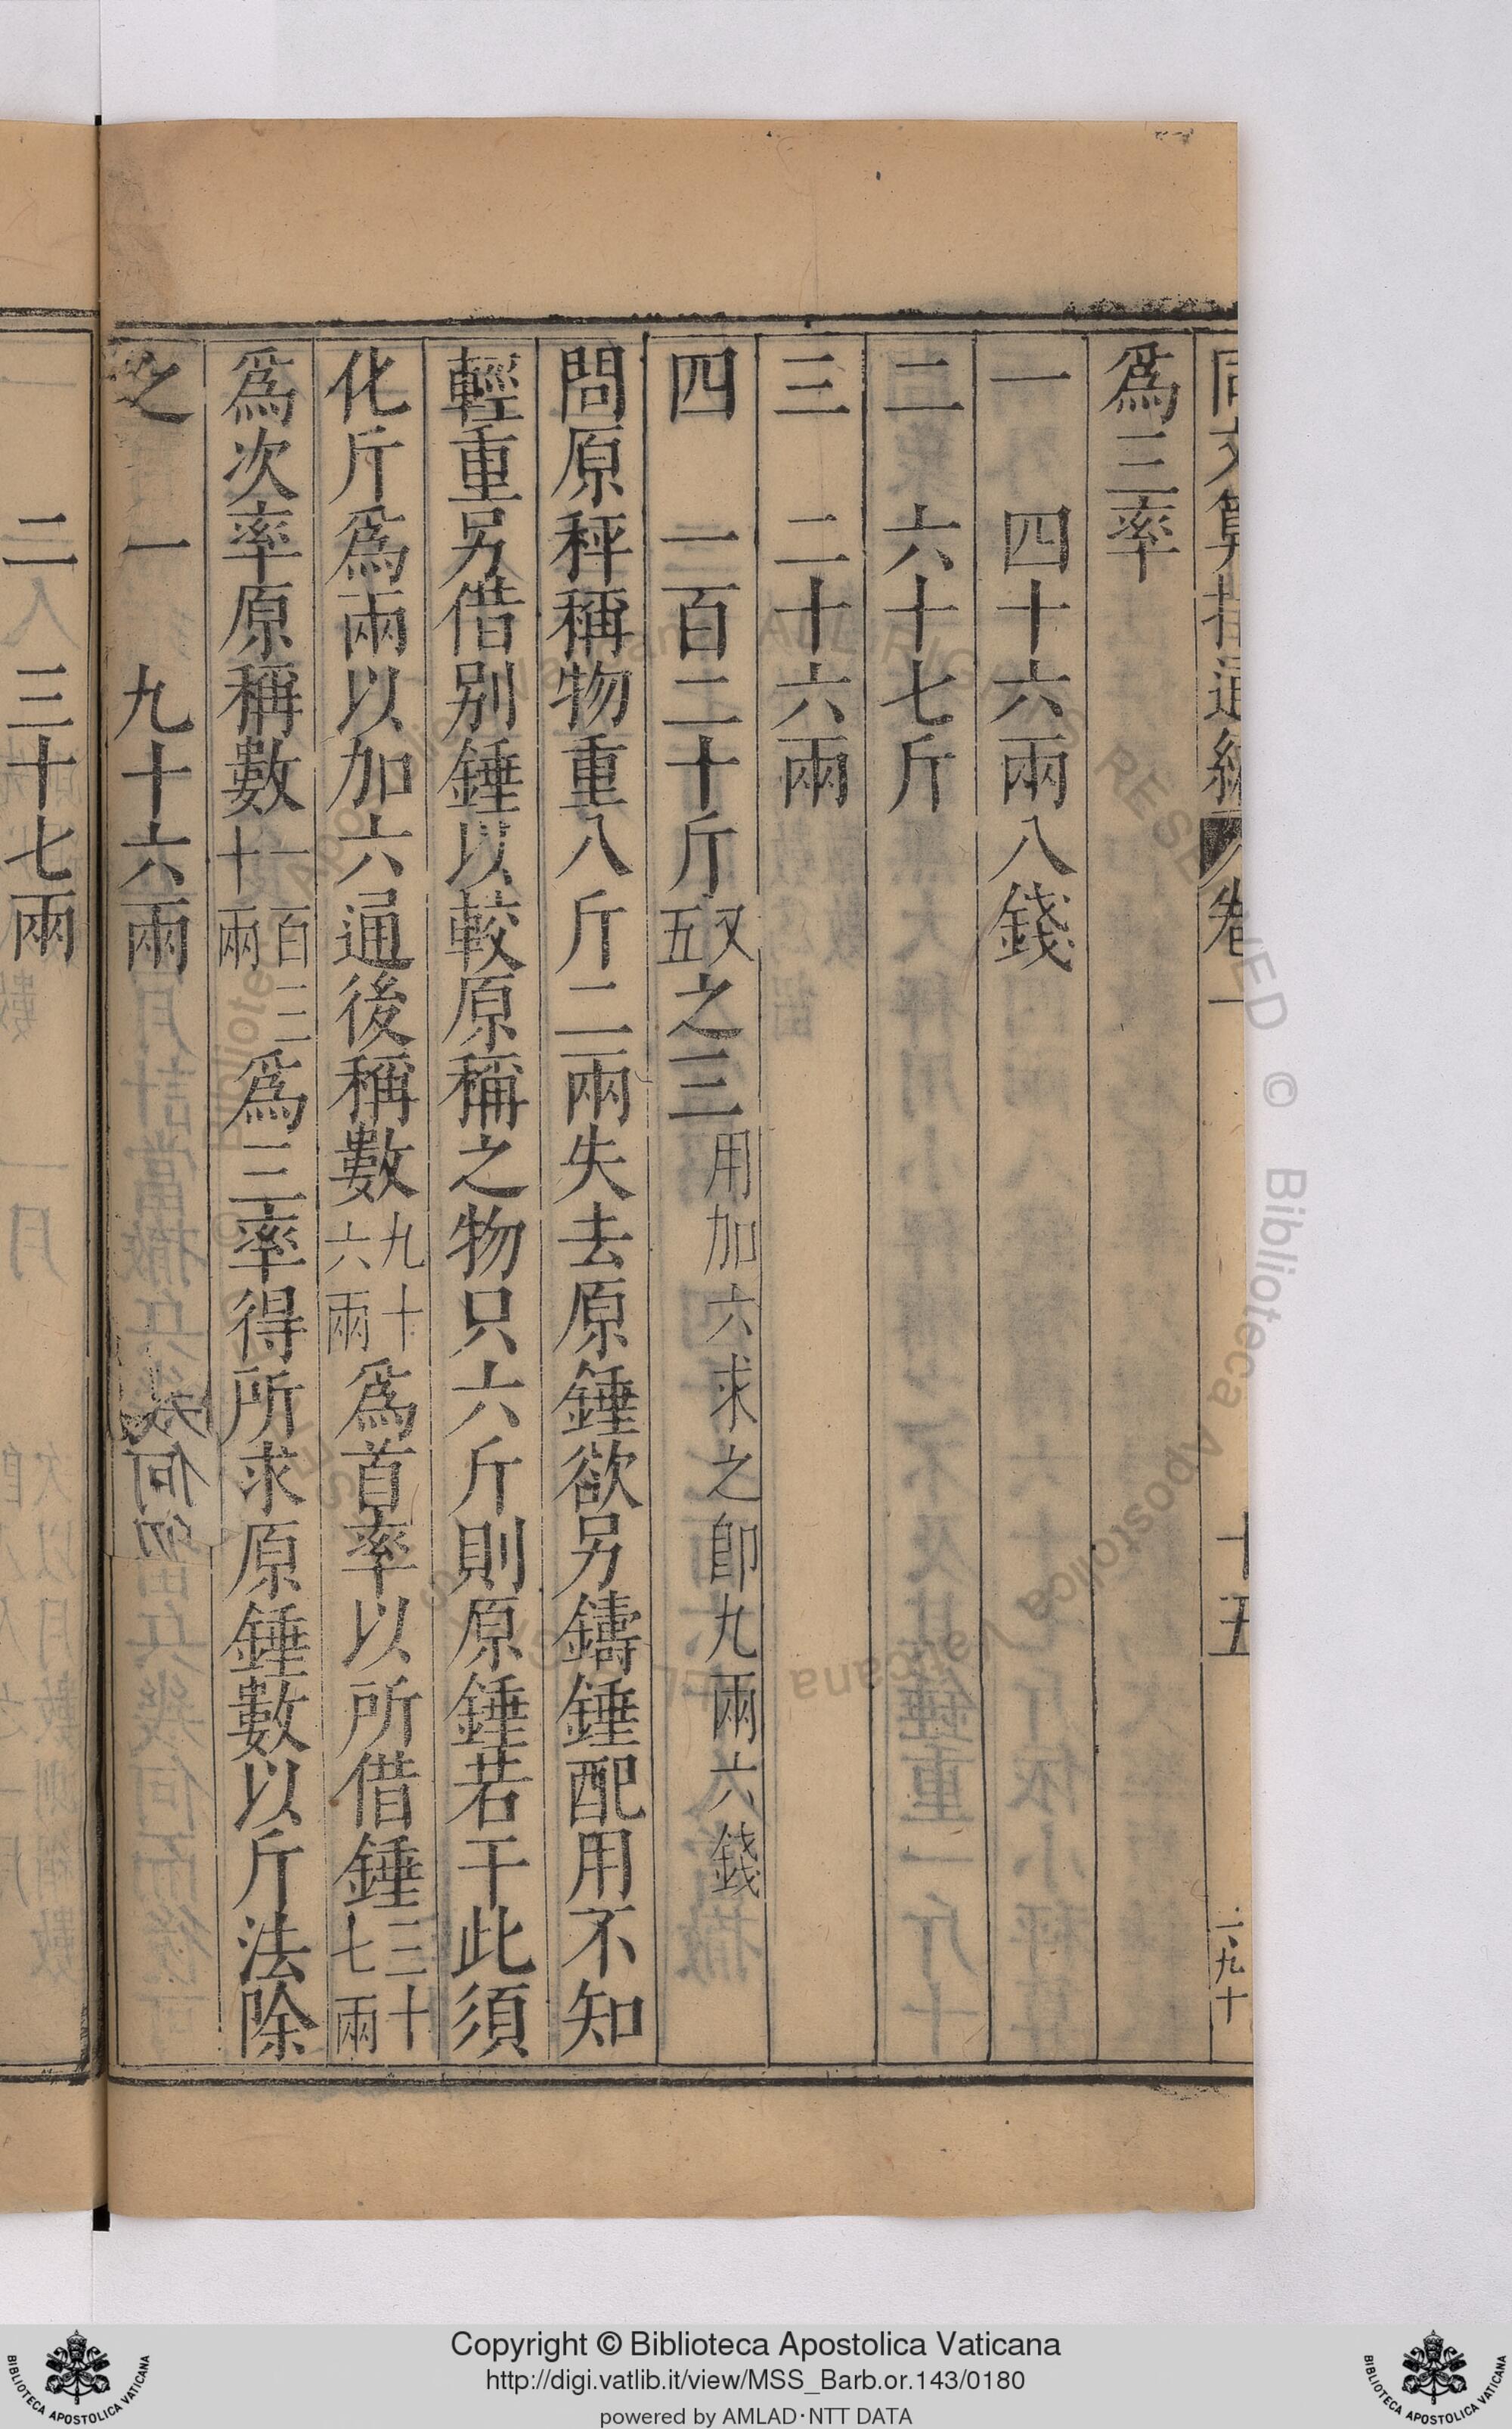 同文算指通編 卷一 十五 一九十
爲三率
一 四十六兩八錢
二 六十七斤
三 二十六兩
四 一百二十斤又五之三用加六求之卽九兩六錢
問原秤稱物重八斤二兩失去原錘欲另鑄錘配用不知
輕重另借别錘以較原稱之物只六斤則原錘若干此須
化斤爲兩以加六通後稱數九十六兩爲首率以所借錘三十七兩
爲次率原稱數一百三十兩爲三率得所求原錘數以斤法除
之 一 九十六兩
二 三十七兩
Copyright © Biblioteca Apostolica Vaticana
http://digi.vatlib.it/view/MSS_Barb.or.143/0180
powered by AMLAD·NTT DATA
BIBLIOTECA APOSTOLICA VATICANA
BIBLIOTECA APOSTOLICA VATICANA